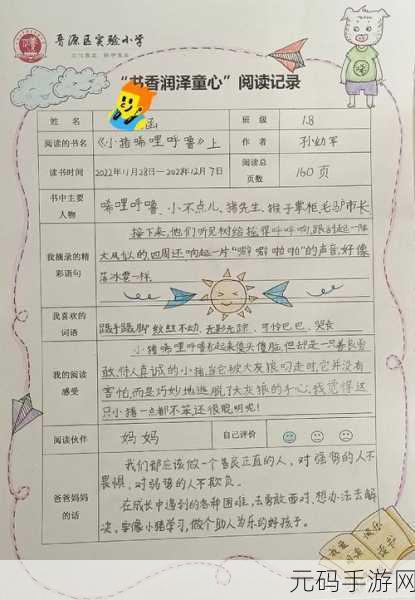 晋源区实验小学
“书香润泽童心”阅读记录
姓 名 函 班 级 1.8
阅读的书名 《小猪唏哩呼噜》上 作 者 孙幼军
读书时间 2022年11月28日—2022年12月7日 阅读总页数 160页
书中主要人物 唏哩呼噜、小不点儿、猪先生、猴子掌柜、毛驴市长
我摘录的精彩语句
接下来,他们听见树给摇得哗哗响,跟刮起一阵
大风似的,四周还响起一片“噼噼啪啪”的声音,好像
落冰雹一样。
我喜欢的词语 蹑手蹑脚 纹丝不动、无影无踪、可怜巴巴、
我的阅读感受
小猪唏哩呼噜看起来傻头傻脑,但却是一只善良勇
敢、待人真诚的小猪,当它被大灰狼叼走时,它并没有
害怕,而是巧妙地逃脱了大灰狼的手心,我觉得这
只小猪一点都不笨还很聪明呢!
阅读伙伴 妈妈 自己评价
爸爸妈妈的话
我们都应该做一个善良正直的人、对强势的人不
畏惧、对弱势的人不欺负。
在成长中遇到的各种困难、去勇敢面对、想办法去解
决、要像小猪学习,做个助人为乐的好孩子。
我爱阅读
快乐
元码手游网